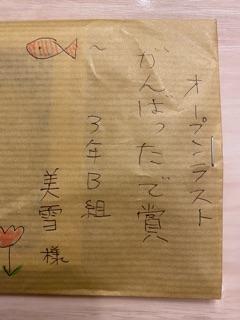 オープンラスト
がんばったで賞
〜
3年B組
美雪 様